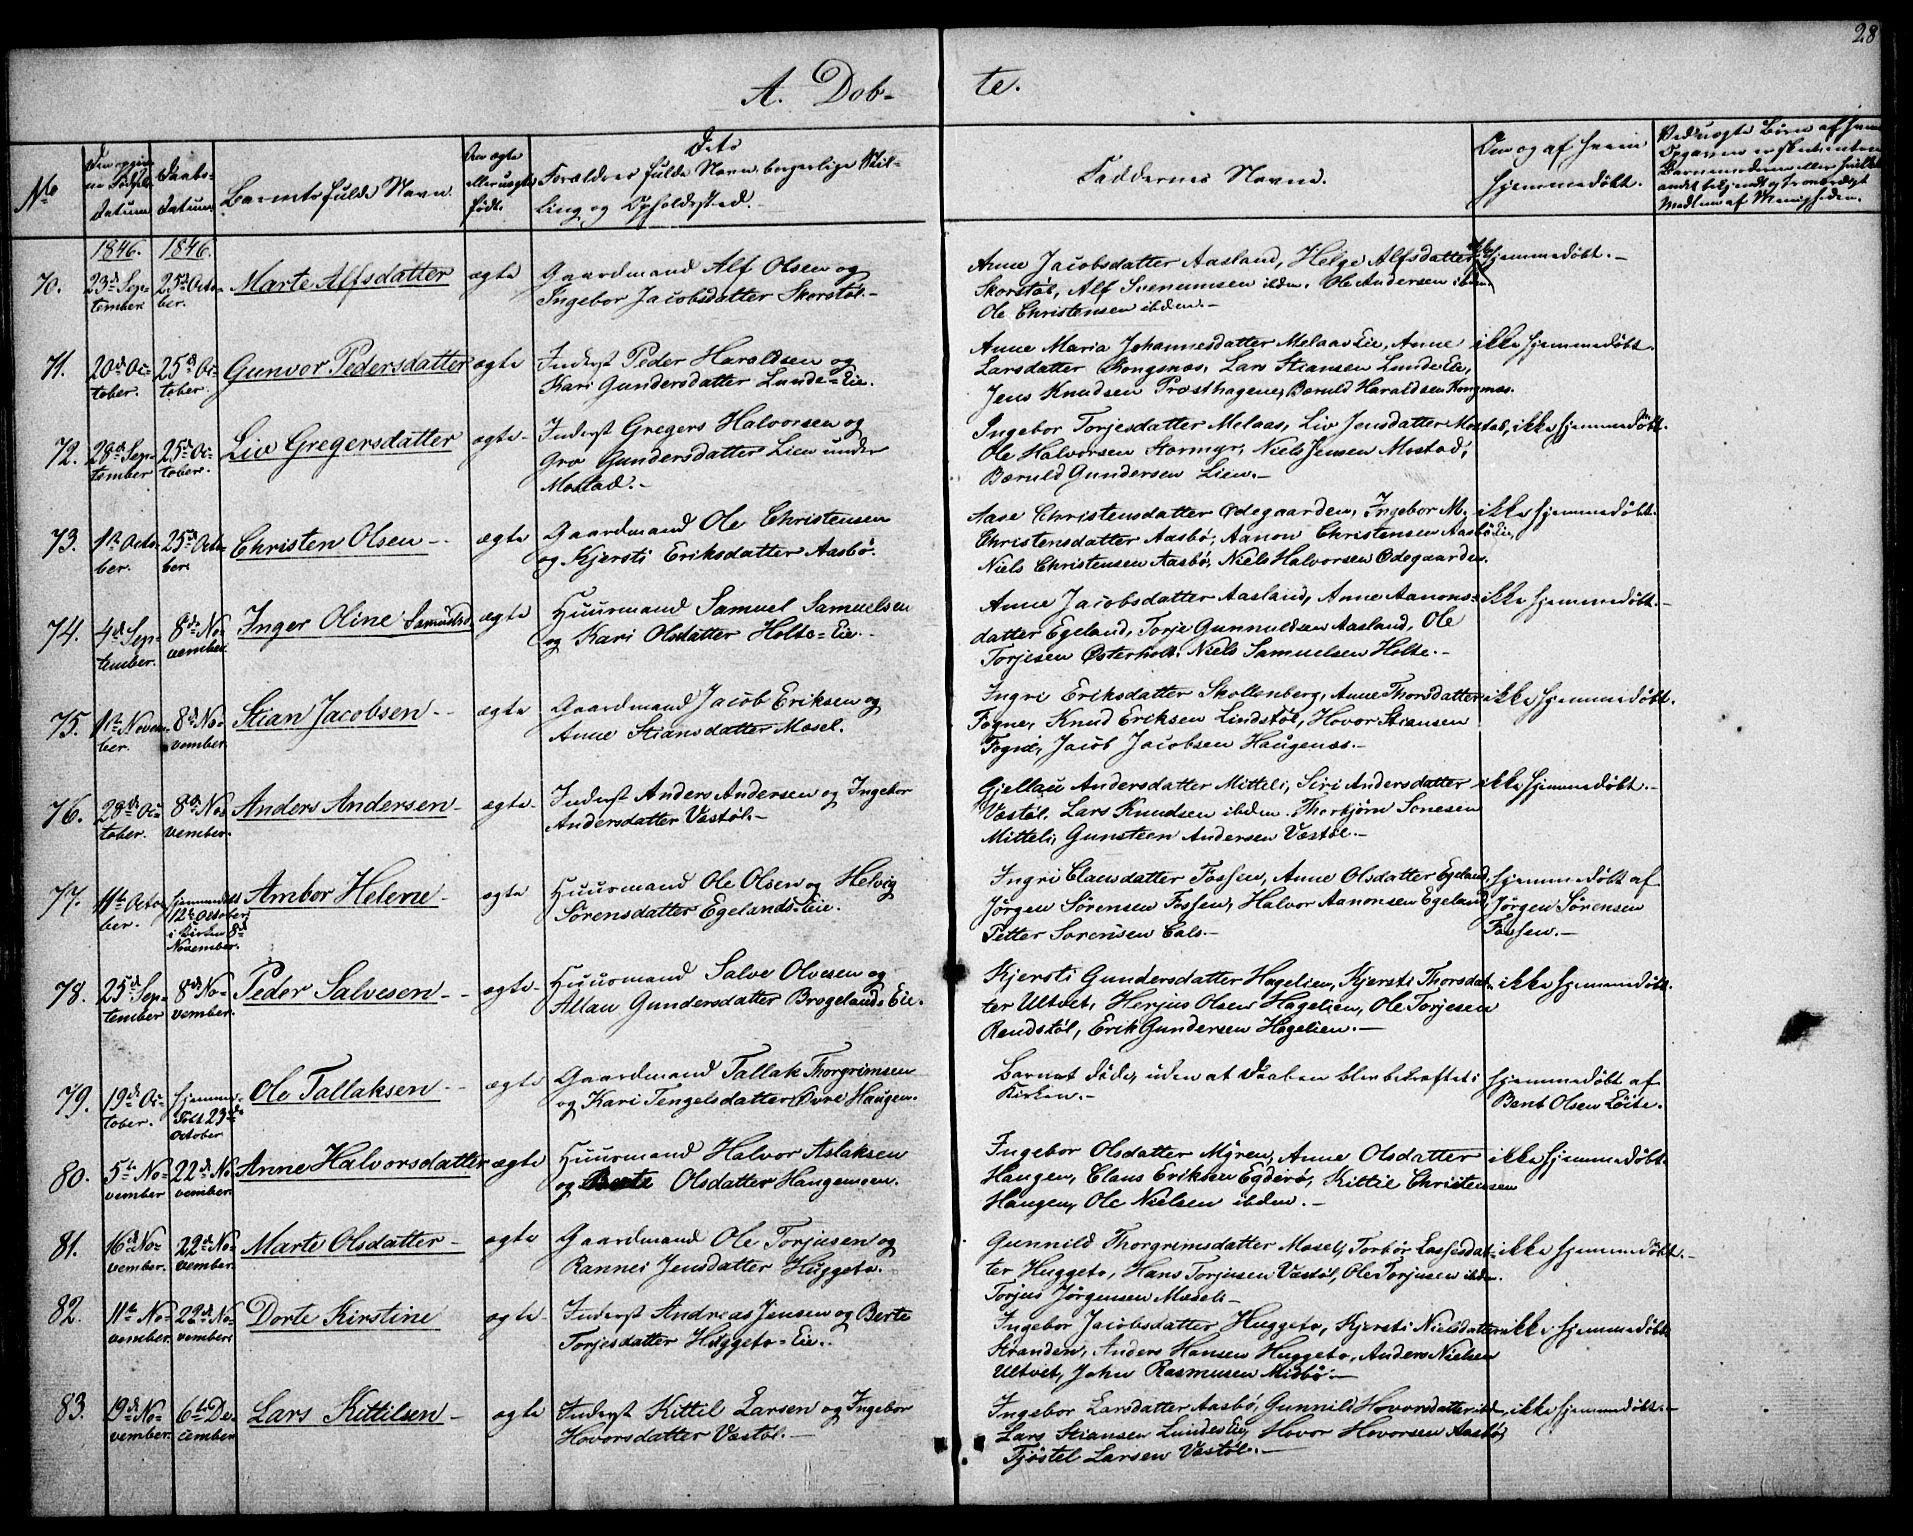 28
A. Døb-
te.
No
Den opgivne Fødsels-Datum
Daabs-Datum
Barnets fulde Navn.
Om ægte eller uægte født.
Dets Forældres fulde Navn, borgerlige Stil-
ling og Opholdssted.
Faddernes Navne.
Om og af hvem
hjemmedøbt.
1846. 1846.
70. 23de Sep-
tember. 25de Octo-
ber. Marte Alfsdatter ægte
Gaardmand Alf Olsen og
Ingebor Jacobsdatter Skorstøl.-
Anne Jacobsdatter Aasland, Helge Alfsdatter
Skorstøl, Alf Svenumsen ibdm. Ole Andersen ibdm
Ole Christensen ibdm.-
ikke hjemmedøbt.-
71. 20de Oc-
tober. 25de Oc-
tober. Gunvor Pedersdatter ægte
Inderst Peder Haraldsen og
Kari Gundersdatter Lunde-Eie.
Anne Maria Johannesdatter Melaas Eie, Anne
Larsdatter Kongsnæs, Lars Stiansen Lunde Eie,
Jens Knudsen Præsthagen, Bæruld Haraldsen Kongsnæs.
ikke hjemmedøbt.
72. 28de Sep-
tember 25de Oc-
tober. Liv Gregersdatter ægte-
Inderst Gregers Halvorsen og
Gro Gundersdatter Lien under
Mostad.-
Ingebor Torjesdatter Melaas, Liv Jensdatter Mostad,
Ole Halvorsen Stormyr, Niels Jensen Mostad,
Bæruld Gundersen Lien.-
ikke hjemmedøbt.
73. 1ste Octo-
ber. 25de Octo-
ber. Christen Olsen - ægte
Gaardmand Ole Christensen
og Kjersti Eriksdatter Aasbø.
Aase Christensdatter Ødegaarden, Ingebor M.
Christensdatter Aasbø, Aanon Christensen Aasbø Eie,
Niels Christensen Aasbø, Niels Halvorsen Ødegaarden.
ikke hjemmedøbt.
74. 4de Sep-
tember. 8de No-
vember. Inger Oline Samuelsd. ægte
Huusmand Samuel Samuelsen
og Kari Olsdatter Holte-Eie.-
Anne Jacobsdatter Aasland, Anne Aanons-
datter Egeland, Torje Gunnuldsen Aasland, Ole
Torjesen Østerholt, Niels Samuelsen Holte.-
ikke hjemmedøbt.-
75. 1ste Novem-
ber. 8de No-
vember. Stian Jacobsen - ægte
Gaardmand Jacob Eriksen og
Anne Stiansdatter Mosel.
Ingri Eriksdatter Skollenberg, Anne Thorsdatter
Fogne, Knud Eriksen Lindstøl, Hovor Stiansen
Fogne, Jacob Jacobsen Haugenæs.-
ikke hjemmedøbt.
76. 28de Oc-
tober. 8de No-
vember. Anders Andersen - ægte-
Inderst Anders Andersen og Ingebor
Andersdatter Vastøl.-
Gjellau Andersdatter Mitteli, Siri Andersdatter
Vastøl, Lars Knudsen ibdm. Thorbjørn Sonesen
Mitteli, Gunsteen Andersen Vastøl.-
ikke hjemmedøbt.-
77. 11te Octo-
ber. hjemmedøbt
12te October
i Kirken 8de
November. Ambor Helene - ægte
Huusmand Ole Olsen og Helvig
Sørensdatter Egelands-Eie.
Ingri Clausdatter Fossen, Anne Olsdatter Egeland,
Jørgen Sørensen Fossen, Halvor Aanonsen Egeland,
Petter Sørensen Cals.-
hjemmedøbt af
Jørgen Sørensen
Fossen.-
78. 25de Sep-
tember 8de No-
vember. Peder Salvesen - ægte-
Huusmand Salve Olvesen og
Allau Gundersdatter Brogelands Eie.
Kjersti Gundersdatter Hagelien, Kjersti Thorsdat-
ter Ultvet, Herjus Olsen Hagelien, Ole Torjesen
Rendstøl, Erik Gundersen Hagelien.-
ikke hjemmedøbt.
79. 19de Oc-
tober. hjemme-
døbt 23de
October Ole Tallaksen - ægte
Gaardmand Tallak Thorgrimsen
og Kari Tengelsdatter Øvre Haugen.
Barnet døde, uden at Daaben blev bekræftet i
Kirken.-
hjemmedøbt af
Bent Olsen Løite.
80. 5te No-
vember 22de No-
vember. Anne Halvorsdatter ægte
Huusmand Halvor Aslaksen
og Berte Olsdatter Haugemoen.
Ingebor Olsdatter Myren, Anne Olsdatter
Haugen, Claus Eriksen Egderø, Kittil Christensen
Haugen, Ole Nielsen ibdm.-
ikke hjemmedøbt.
81. 16de No-
vember. 22de No-
vember. Marte Olsdatter - ægte
Gaardmand Ole Torjusen og
Rannei Jensdatter Huggeto.
Gunnild Thorgrimsdatter Mosel, Torbør Lassesdat-
ter Huggeto, Hans Torjusen Vastøl, Ole Torjusen ibdm.
Torjus Jørgensen Mosel.-
ikke hjemmedøbt.-
82. 11te No-
vember. 22de No-
vember. Dorte Kirstine ægte-
Inderst Andreas Jensen og Berte
Torjesdatter Huggeto-Eie.
Ingebor Jacobsdatter Huggeto, Kjersti Nielsdatter
Stranden, Anders Hansen Huggeto, Anders Nielsen
Ultvet, John Rasmussen Misbø.-
ikke hjemmedøbt
83. 19de No-
vember. 6te De-
cember Lars Kittilsen - ægte
Inderst Kittil Larsen og Ingebor
Hovorsdatter Vastøl.-
Ingebor Larsdatter Aasbø, Gunnild Hovorsdatter ibdm,
Lars Stiansen Lundes Eie, Hovor Hovorsen Aasbø,
Fjøstel Larsen Vastøl.-
ikke hjemmedøbt.-